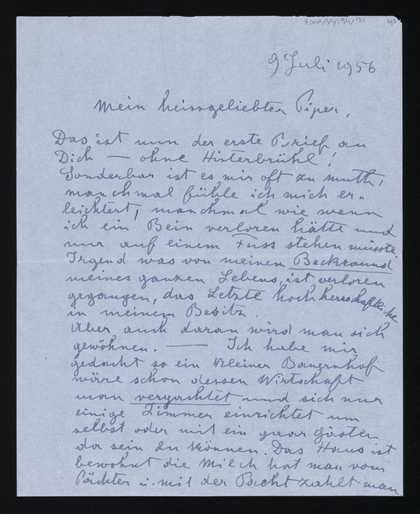 9 Juli 1956
Mein heissgeliebter Piper,
Das ist nun der erste Brief an
Dich — ohne Hinterbrühl!
Sonderbar ist es mir oft zu muth,
manchmal fühle ich mich er-
leichtert, manchmal wie wenn
ich ein Bein verloren hätte und
nur auf einem Fuss stehen müsste
Irgend was von meinem Backround
meines ganzen Lebens, ist verloren
gegangen, das Letzte hochherrschaftliche
in meinem Besitz.
Aber auch daran wird man sich
gewöhnen. — Ich habe mir
gedacht so ein kleiner Bauernhof
wäre schön dessen Wirtschaft
man verpachtet und sich nur
einige Zimmer einrichtet um
selbst oder mit ein paar Gästen
da sein zu können. Das Haus ist
bewohnt die Milch hat man vom
Pächter u. mit der Pacht zahlt man